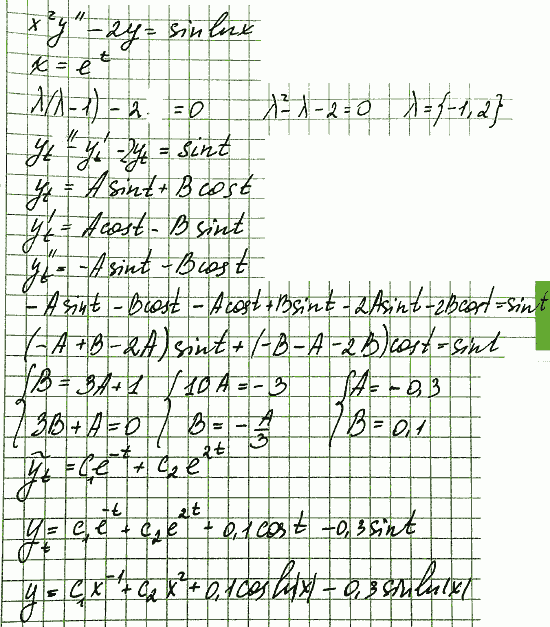 x²y'' - 2y = sin ln x
x = e^t
λ(λ-1) - 2 = 0 λ² - λ - 2 = 0 λ = {-1, 2}
y_t'' - y_t' - 2y_t = sin t
y_t = A sin t + B cos t
y_t' = A cos t - B sin t
y_t'' = -A sin t - B cos t
-A sin t - B cos t - A cos t + B sin t - 2A sin t - 2B cos t = sin t
(-A + B - 2A) sin t + (-B - A - 2B) cos t = sin t
{B = 3A + 1 {10A = -3 {A = -0,3
3B + A = 0 B = -A/3 B = 0,1
ỹ_t = C₁e^{-t} + C₂e^{2t}
y_t = C₁e^{-t} + C₂e^{2t} + 0,1 cos t - 0,3 sin t
y = C₁x^{-1} + C₂x² + 0,1 cos ln|x| - 0,3 sin ln|x|